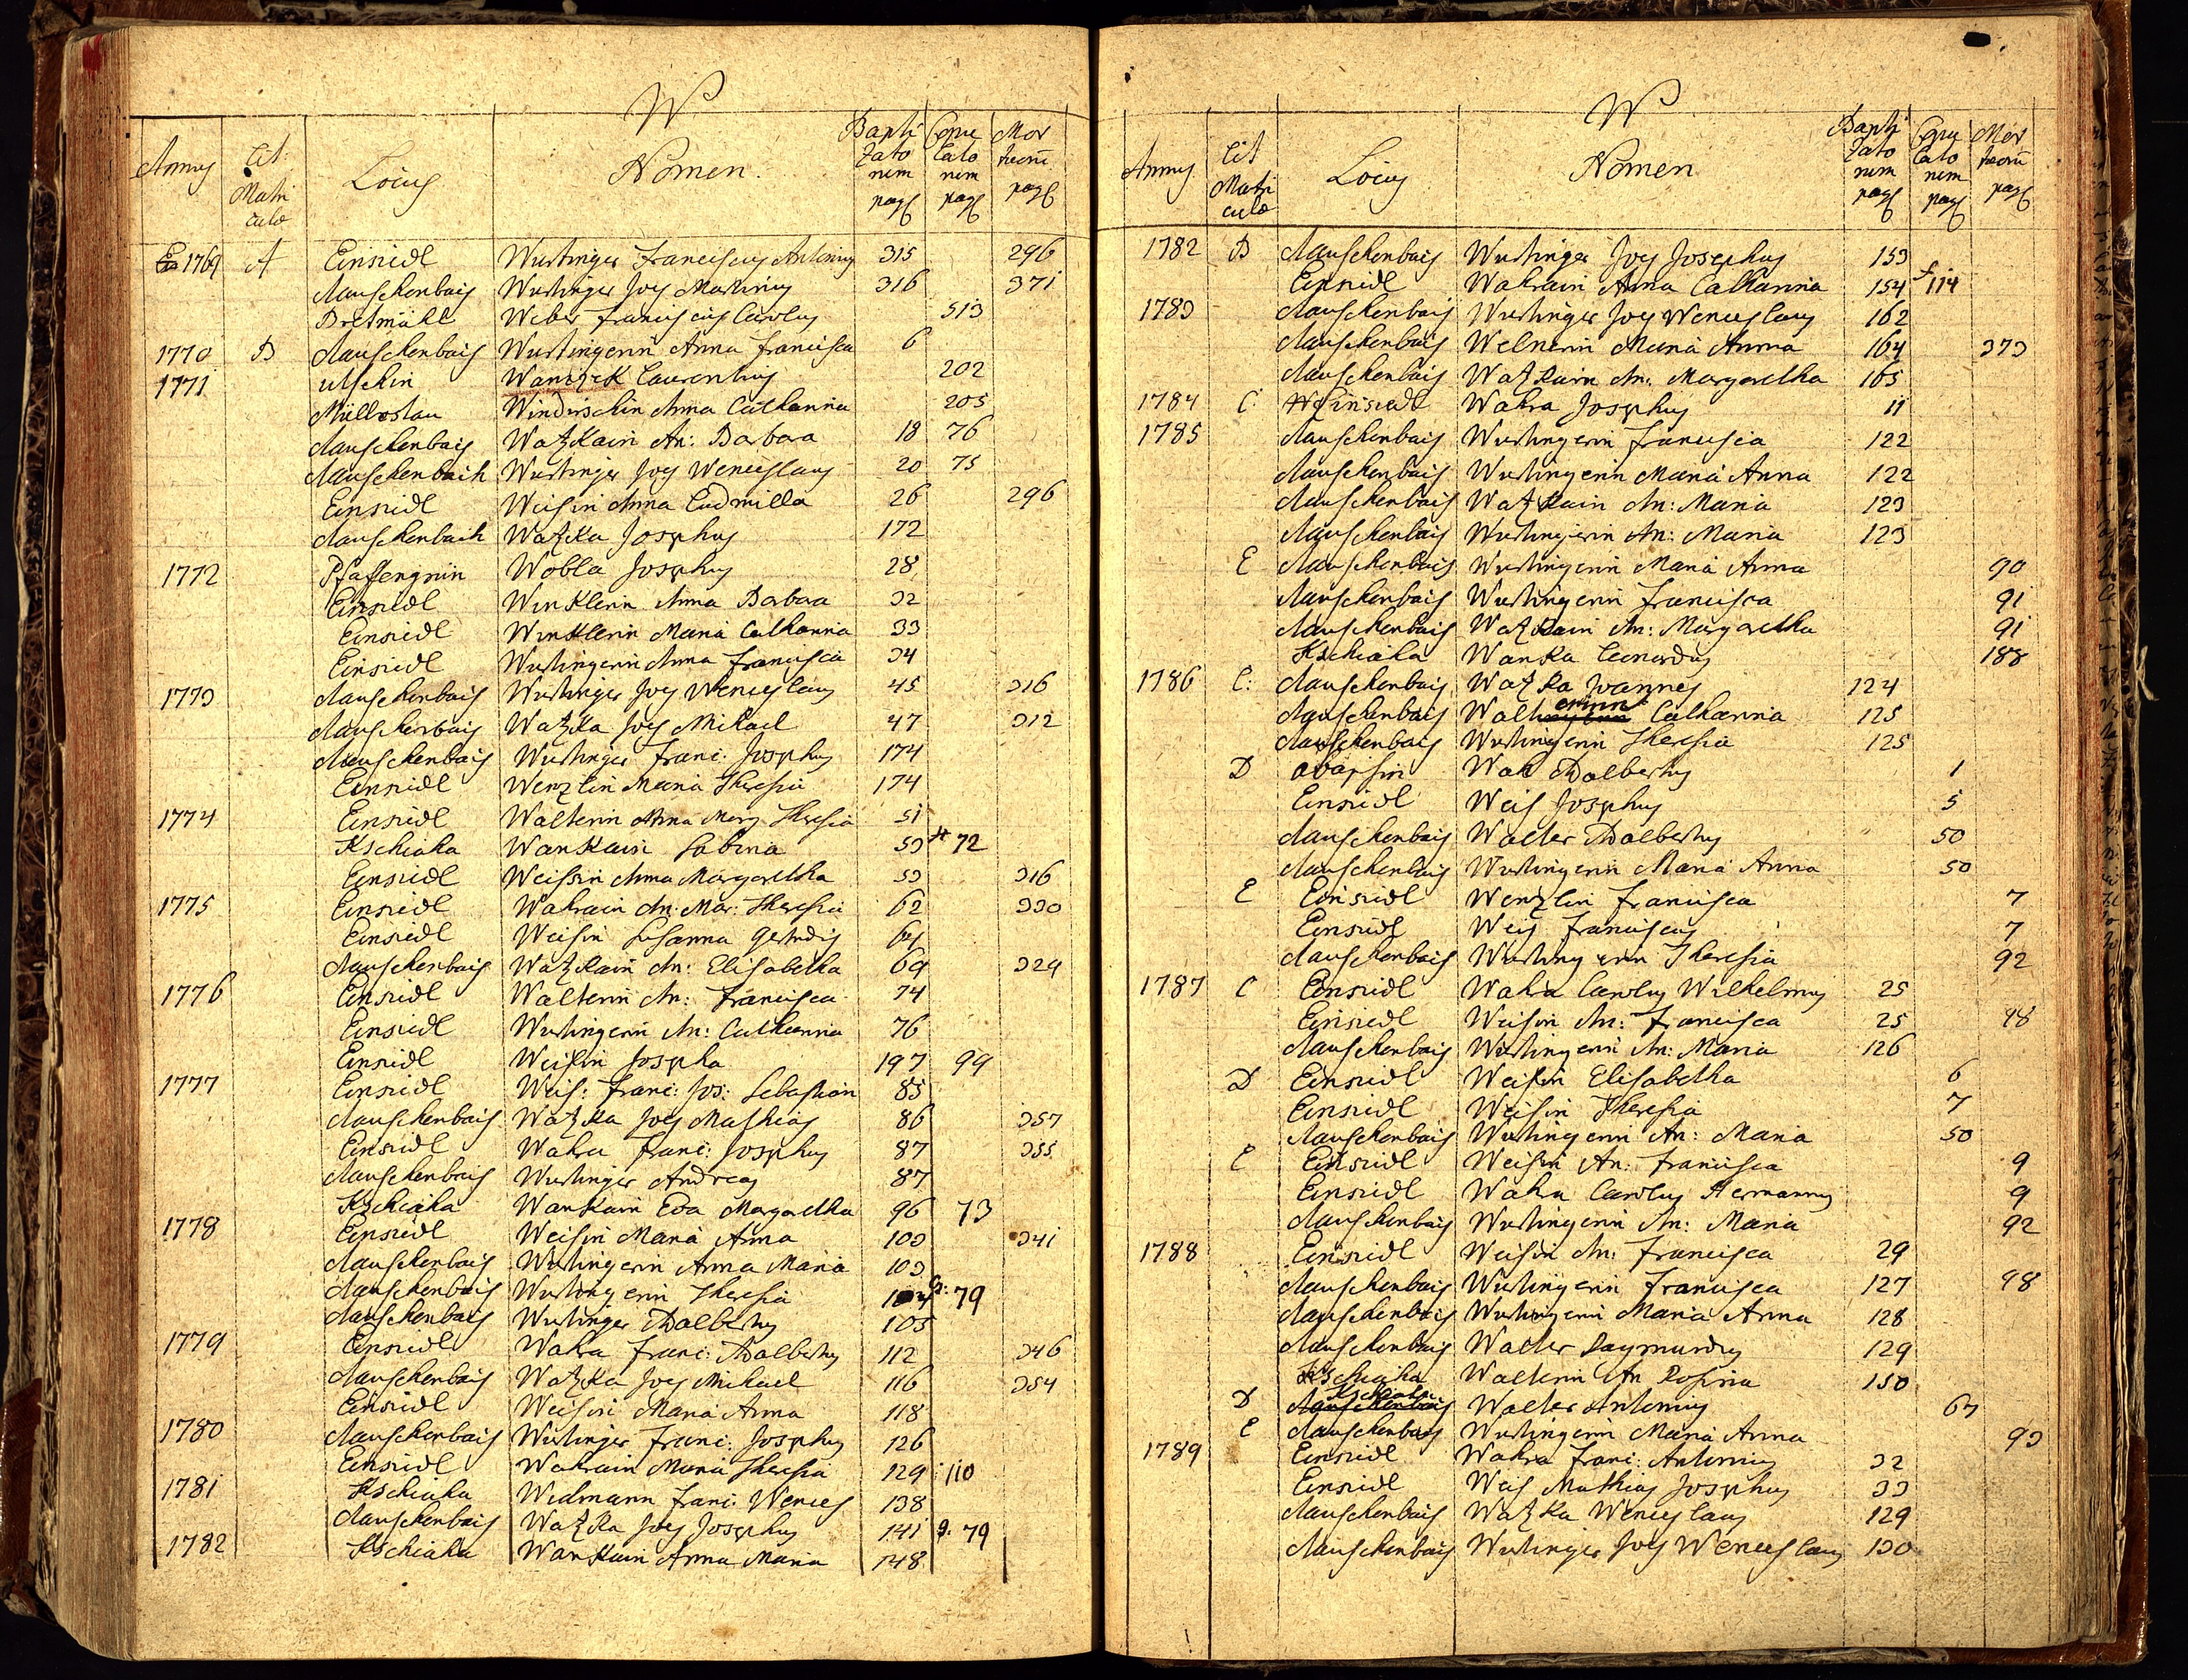 W
Annus Lit: Matri culæ Locus Nomen. Bapti zato rum pag Copu lato rum pag Mor tuorũ pag
1769 A Einsiedl Wurtinger Franciscus Antonius 315 296
Rauschenbach Wurtinger Joes Martinus 316 371
Bretmühl Weber Franciscus Carolus 513
1770 B Rauschenbach Wurtingerin Anna Francisca 6
1771 Utschin Wanczek Laurentius 202
Müllestau Windirschin Anna Catharina 205
Rauschenbach Watzkain An: Barbara 18 76
Rauschenbach Wurtinger Joes Wenceslaus 20 75
Einsiedl Weisin Anna Ludmilla 26 296
Rauschenbach Watzka Josephus 172
1772 Pfaffengrün Wobla Josephus 28
Einsiedl Winklerin Anna Barbara 32
Einsiedl Winklerin Maria Catharina 33
Einsiedl Wurtingerin Anna Francisca 34
1773 Rauschenbach Wurtinger Joes Wenceslaus 45 316
Rauschenbach Watzka Joes Michael 47 312
Rauschenbach Wurtinger Franc: Josephus 174
Einsiedl Wenzlin Maria Theresia 174
1774 Einsiedl Walterin Anna Marg Theresia 51
Kschiaha Wankain Sabina 53 72
Einsiedl Weissin Anna Margaretha 53 316
1775 Einsiedl Wahrain An: Mar: Theresia 62 330
Einsiedl Weisin Susanna Gertrudis 64
Rauschenbach Watzkain An: Elisabetha 69 329
1776 Einsiedl Walterin An: Francisca 74
Einsiedl Wurtingerin An: Catharina 76
Einsiedl Weissin Josepha 197 99
1777 Einsiedl Weis: Franc: Jos: Sebastian 85
Rauschenbach Watzka Joes Mathias 86 357
Einsiedl Wahra Franc: Josephus 87 355
Rauschenbach Wurtinger Andreas 87
Kschiaha Wankain Eva Margaretha 96 73
1778 Einsiedl Weisin Maria Anna 103 341
Rauschenbach Wurtingerin Anna Maria 103
Rauschenbach Wurtingerin Theresia 104 79
Rauschenbach Wurtinger Adalbertus 105
1779 Einsiedl Wahra Franc: Adalbertus 112 346
Rauschenbach Watzka Joes Michael 116 354
Einsiedl Weisin Maria Anna 118
1780 Rauschenbach Wurtinger Franc: Josephus 126
Einsiedl Wahrain Maria Theresia 129 110
1781 Kschiaha Widmann Franc: Wences 138
Rauschenbach Watzka Joes Josephus 141 79
1782 Kschiaha Wankain Anna Maria 148
W
Annus Lit Matri culæ Locus Nomen Bapti zato rum pag Copu lato rum pag Mor tuorũ pag
1782 B Rauschenbach Wurtinger Joes Josephus 153
Einsiedl Wahrain Anna Catharina 154 114
1783 Rauschenbach Wurtinger Joes Wenceslaus 162
Rauschenbach Welnerin Maria Anna 164 373
Rauschenbach Watzkain An: Margaretha 165
1784 C: Einsiedl Wahra Josephus 11
1785 Rauschenbach Wurtingerin Francisca 122
Rauschenbach Wurtingerin Maria Anna 122
Rauschenbach Watzkain An: Maria 123
Rauschenbach Wurtingerin An: Maria 123
E Rauschenbach Wurtingerin Maria Anna 90
Rauschenbach Wurtingerin Francisca 91
Rauschenbach Watzkain An: Margaretha 91
Kschiaha Wanka Leonardus 188
1786 C: Rauschenbach Watzka Joannes 124
Rauschenbach Walterinn Catharina 125
Rauschenbach Wurtingerin Theresia 125
D Wak Adalbertus 1
Einsiedl Weis Josephus 5
Rauschenbach Walter Adalbertus 50
Rauschenbach Wurtingerin Maria Anna 50
E Einsiedl Wenzlin Francisca 7
Einsiedl Weis Franciscus 7
Rauschenbach Wurtingerin Theresia 92
1787 C Einsiedl Wahra Carolus Wilhelmus 25
Einsiedl Weisin An: Francisca 25 98
Rauschenbach Wurtingerin An: Maria 126
D Einsiedl Weisin Elisabetha 6
Einsiedl Weisin Theresia 7
Rauschenbach Wurtingerin An: Maria 50
E Einsiedl Weisin An: Francisca 9
Einsiedl Wahra Carolus Hermannus 9
Rauschenbach Wurtingerin An: Maria 92
1788 Einsiedl Weisin An: Francisca 29
Rauschenbach Wurtingerin Francisca 127 98
Rauschenbach Wurtingerin Maria Anna 128
Rauschenbach Walter Raymundus 129
Kschiaha Walterin An Rosina 150
D Kschiaha Walter Antonius 67
E Rauschenbach Wurtingerin Maria Anna 93
1789 Einsiedl Wahra Franc: Antonius 32
Einsiedl Weis Mathias Josephus 33
Rauschenbach Watzka Wenceslaus 129
Rauschenbach Wurtinger Joes Wenceslaus 130